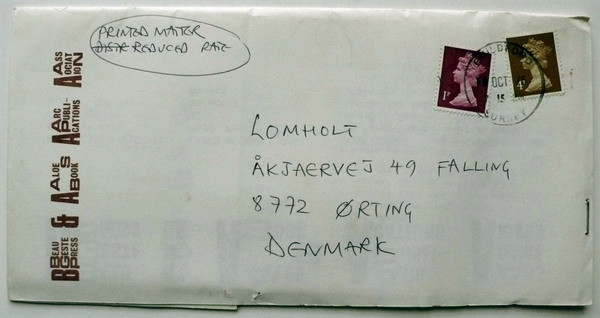 PRINTED MATTER
REDUCED RATE
1P
4P
OCT
15
SURREY
LOMHOLT
ÅKJAERVEJ 49 FALLING
8772 ØRTING
DENMARK
BEAU
GESTE
PRESS
&
ALOE'S
BOOK
ARC
PUBLI-
CATIONS
ASS
OCIAT
ION